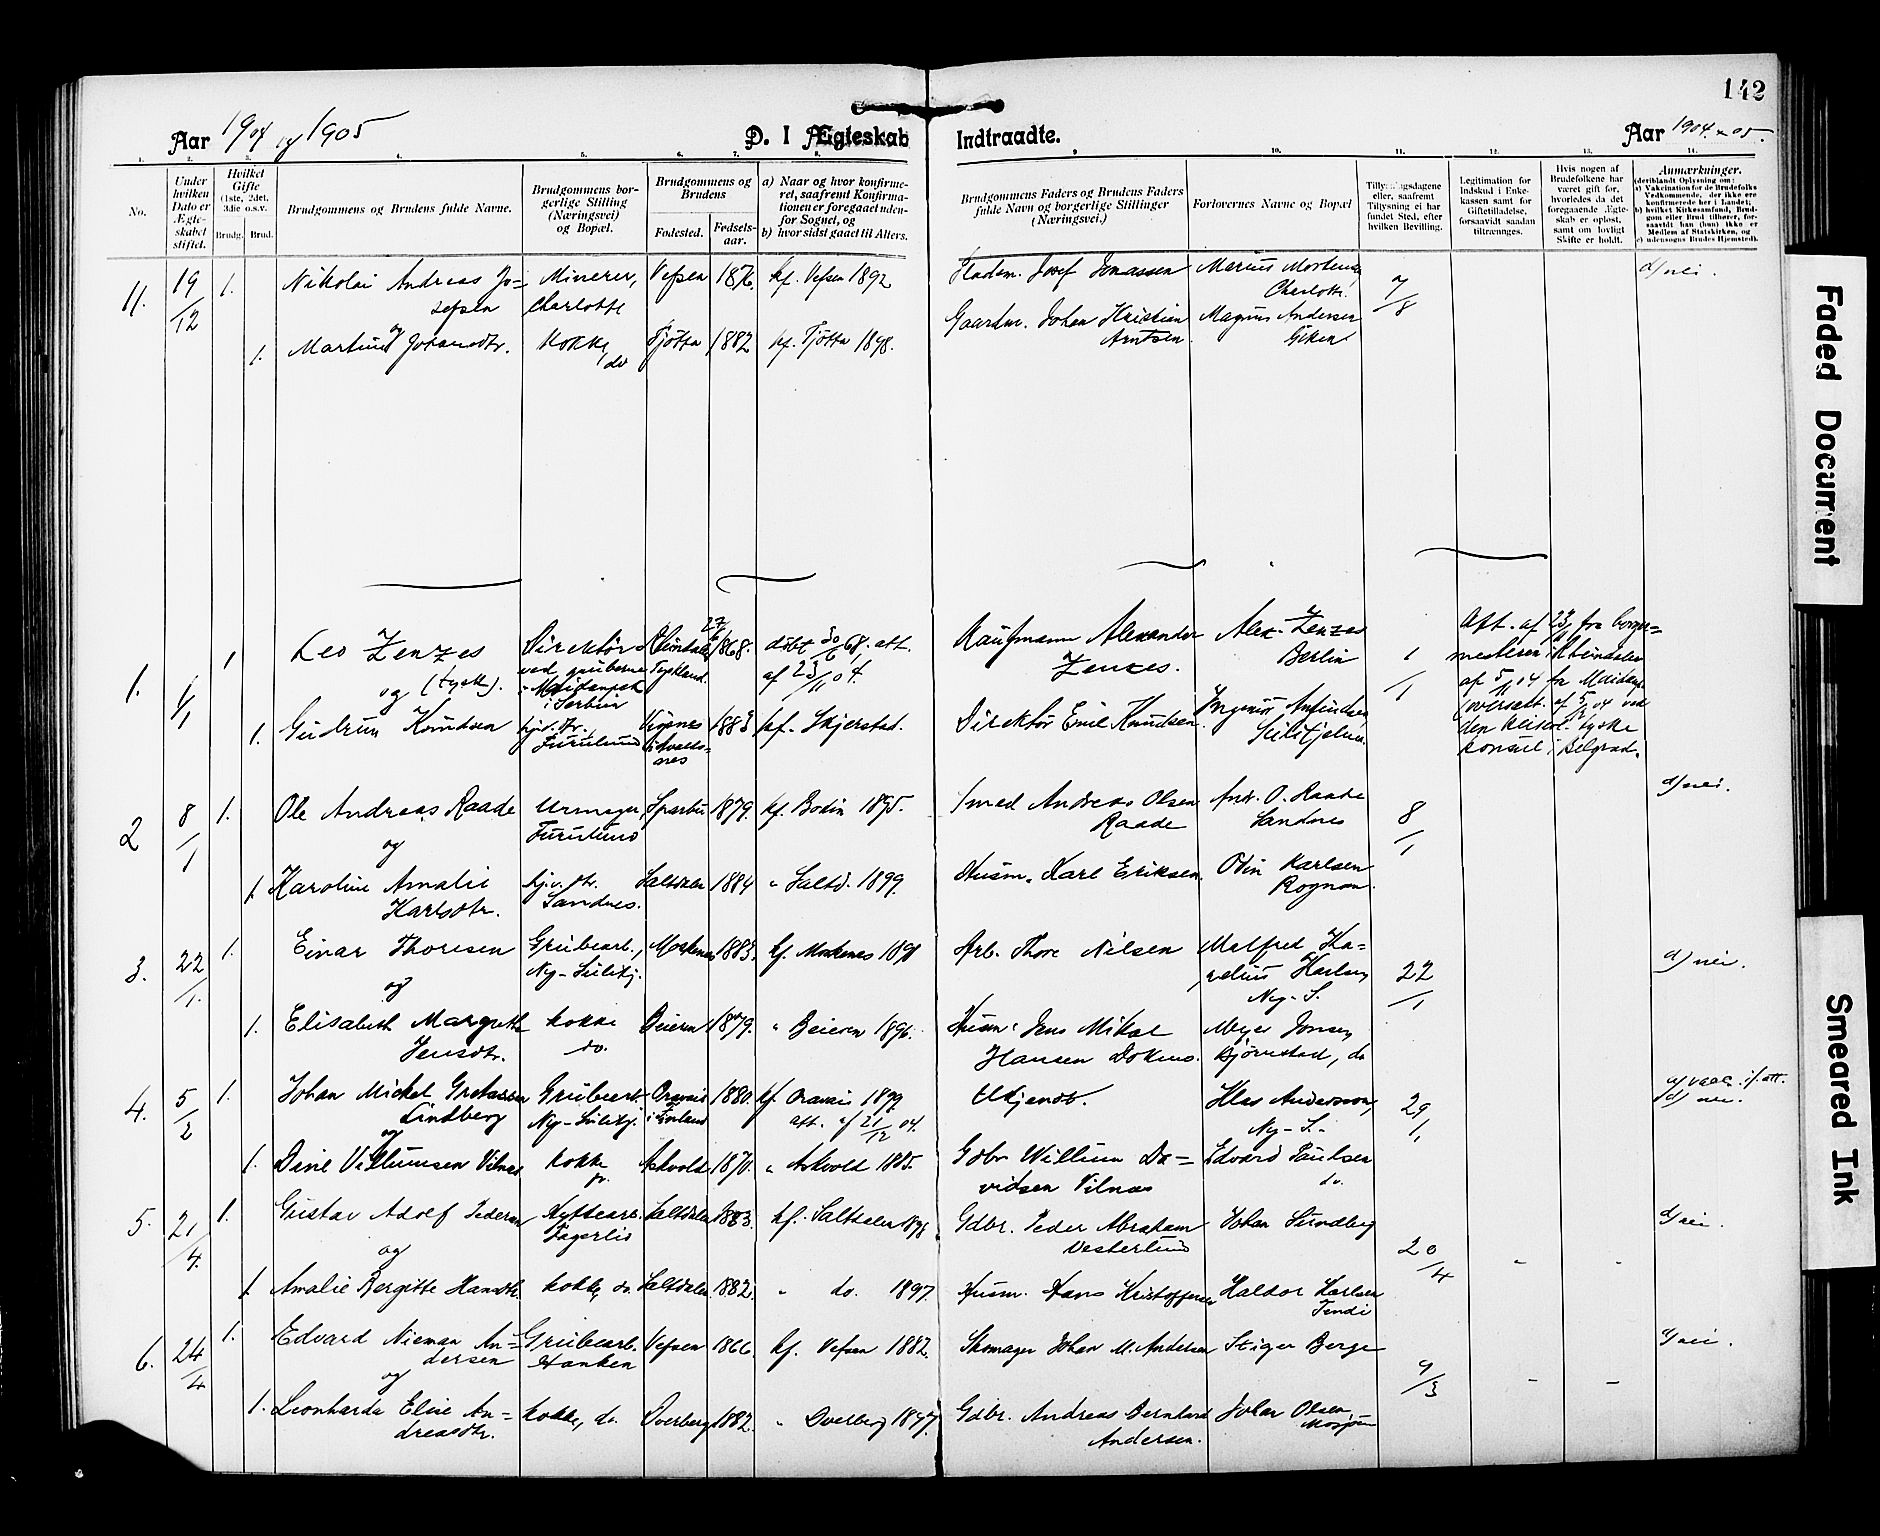 142
Aar 1904 og 1905
D. I Ægteskab Indtraadte.
Aar 1904 & 05.
1. 2. 3. 4. 5. 6. 7. 8. 9. 10. 11. 12. 13. 14.
No.
Under hvilken Dato er Ægteskabet stiftet.
Hvilket Gifte (1ste, 2det, 3die o.s.v.
Brudg. Brud.
Brudgommens og Brudens fulde Navne.
Brudgommens borgerlige Stilling (Næringsvei) og Bopæl.
Brudgommens og Brudens
Fødested. Fødselsaar.
a) Naar og hvor konfirmeret, saafremt Konfirmationen er foregaaet udenfor Sognet, og
b) hvor sidst gaaet til Alters.
Brudgommens Faders og Brudens Faders fulde Navn og borgerlige Stillinger (Næringsvei.)
Forlovernes Navne og Bopæl
Tillysningsdagene eller, saafremt Tillysning ei har fundet Sted, efter hvilken Bevilling.
Legitimation for Indskud i Enkekassen samt for Giftetilladelse, forsaavidt saadan tiltrænges.
Hvis nogen af Brudefolkene har været gift før, hvorledes da det foregaaende Ægteskab er opløst, samt om lovligt Skifte er holdt.
Anmærkninger.
(deriblandt Oplysning om:
a) Vakcination for de Brudefolks Vedkommende, der ikke ere konfirmerede her i Landet;
b) hvilket Kirkesamfund, Brudgom eller Brud tilhører, forsaavidt han (hun) ikke er Medlem af Statskirken, og
c) udensogns Brudes Hjemsted).
11. 19/12 1. Nikolai Andreas Josefsen Minerer, Charlotte Vefsen 1876. kf. Vefsen 1892 Josef Jonassen Marius Charlotte 7/8 d) nei.
og
1. Johansdtr. Kokke, do Tjøtta 1882 kf. Tjøtta 1898. Gaardm. Johan Kristian Arntsen. Magnus Andersen Giken
1. 1. Leo Zenzes (tysk). Direktør ved gruberne i Maidanpek i Serbien Tyskland. 27/6 1868. døbt 30/6 68. att. af 23/11 04 Kaufmann Alexander Zenzes. Alex. Zenzes Berlin 1/1
Att. af 23/ fra borgermesteren i
af 5/11 04 fra
oversatt. af 5/ 04 ved
den keiserl. tyske
konsul i Belgrad.
og
1. Gudrun Knudsen hjv. dtr. Furulund 1883 kf. Skjerstad. Direktør Emil Knudsen. Sulitjelma.
2 8/1 1. Ole Andreas Raade Urmager, Furulund Sparbu 1879. kf. Bodin 1895. Smed Andreas Olsen Raade Andr. O. Raade Sandnes 8/1 d) nei.
og
1. Karoline Amalie Karlsdtr. hj. v. dtr. Sandnes. Saltdalen 1884 " Saltd. 1899. Husm. Karl Eriksen. Odin Karlsen Rognan.
3. 22/1. 1. Einar Thoresen Grubearb., Ny-Sulitj. Moskenes 1883. kf. Moskenes Arb. Thore Nilsen Karlsen, Ny-S. 22/1 d) nei.
og
1. Elisabeth Margrethe Jensdtr. kokke do. Beieren 1879. " Beieren 1896. Husm. Jens Mikal Hansen Dokmo. Meyer Jonsen, Bjørnstad, do
4. 5/2 1. Johan Mickel Lindberg Grubearb. Ny-Sulitj. Oravais i Finland 1880. kf. Oravais 1899. att. af 21/12 04. Ukjendt. Klas Andersson, Ny-S. 29/1 d) nei.
og
1. Dine Villumsen Vilnes kokke Askvold 1870. " Askvold 1885. Gdbr. Willum Davidsen Vilnes Edvard Paulsen do.
5. 21/4. 1. Gustav Adolf Pedersen Fagerli Saltdalen 1883. kf. Saltdalen 1898 Gdbr. Peder Abraham Vesterlund Johan Sundberg 20/4 - - d) nei.
og
1. Amalie Bergitte Hansdtr. kokke, do. Saltdalen 1882. " do. 1897. Husm. Hans Kristoffersen Haldor Karlsen
6. 24/4 1. Edvard Nieman Andersen Grubearb. Hanken Vefsen 1866. kf. Vefsen 1882. Skomager Johan M. Andersen Stiger Berge 9/3 - - d) nei.
og
1. Leonharda Elise Andreasdtr. kokke, do. Dverberg 1882. " Dverberg 1897. Gdbr. Andreas Bernhard Andersen. Johan Olsen, Mosjøen
Faded Document
Smeared Ink